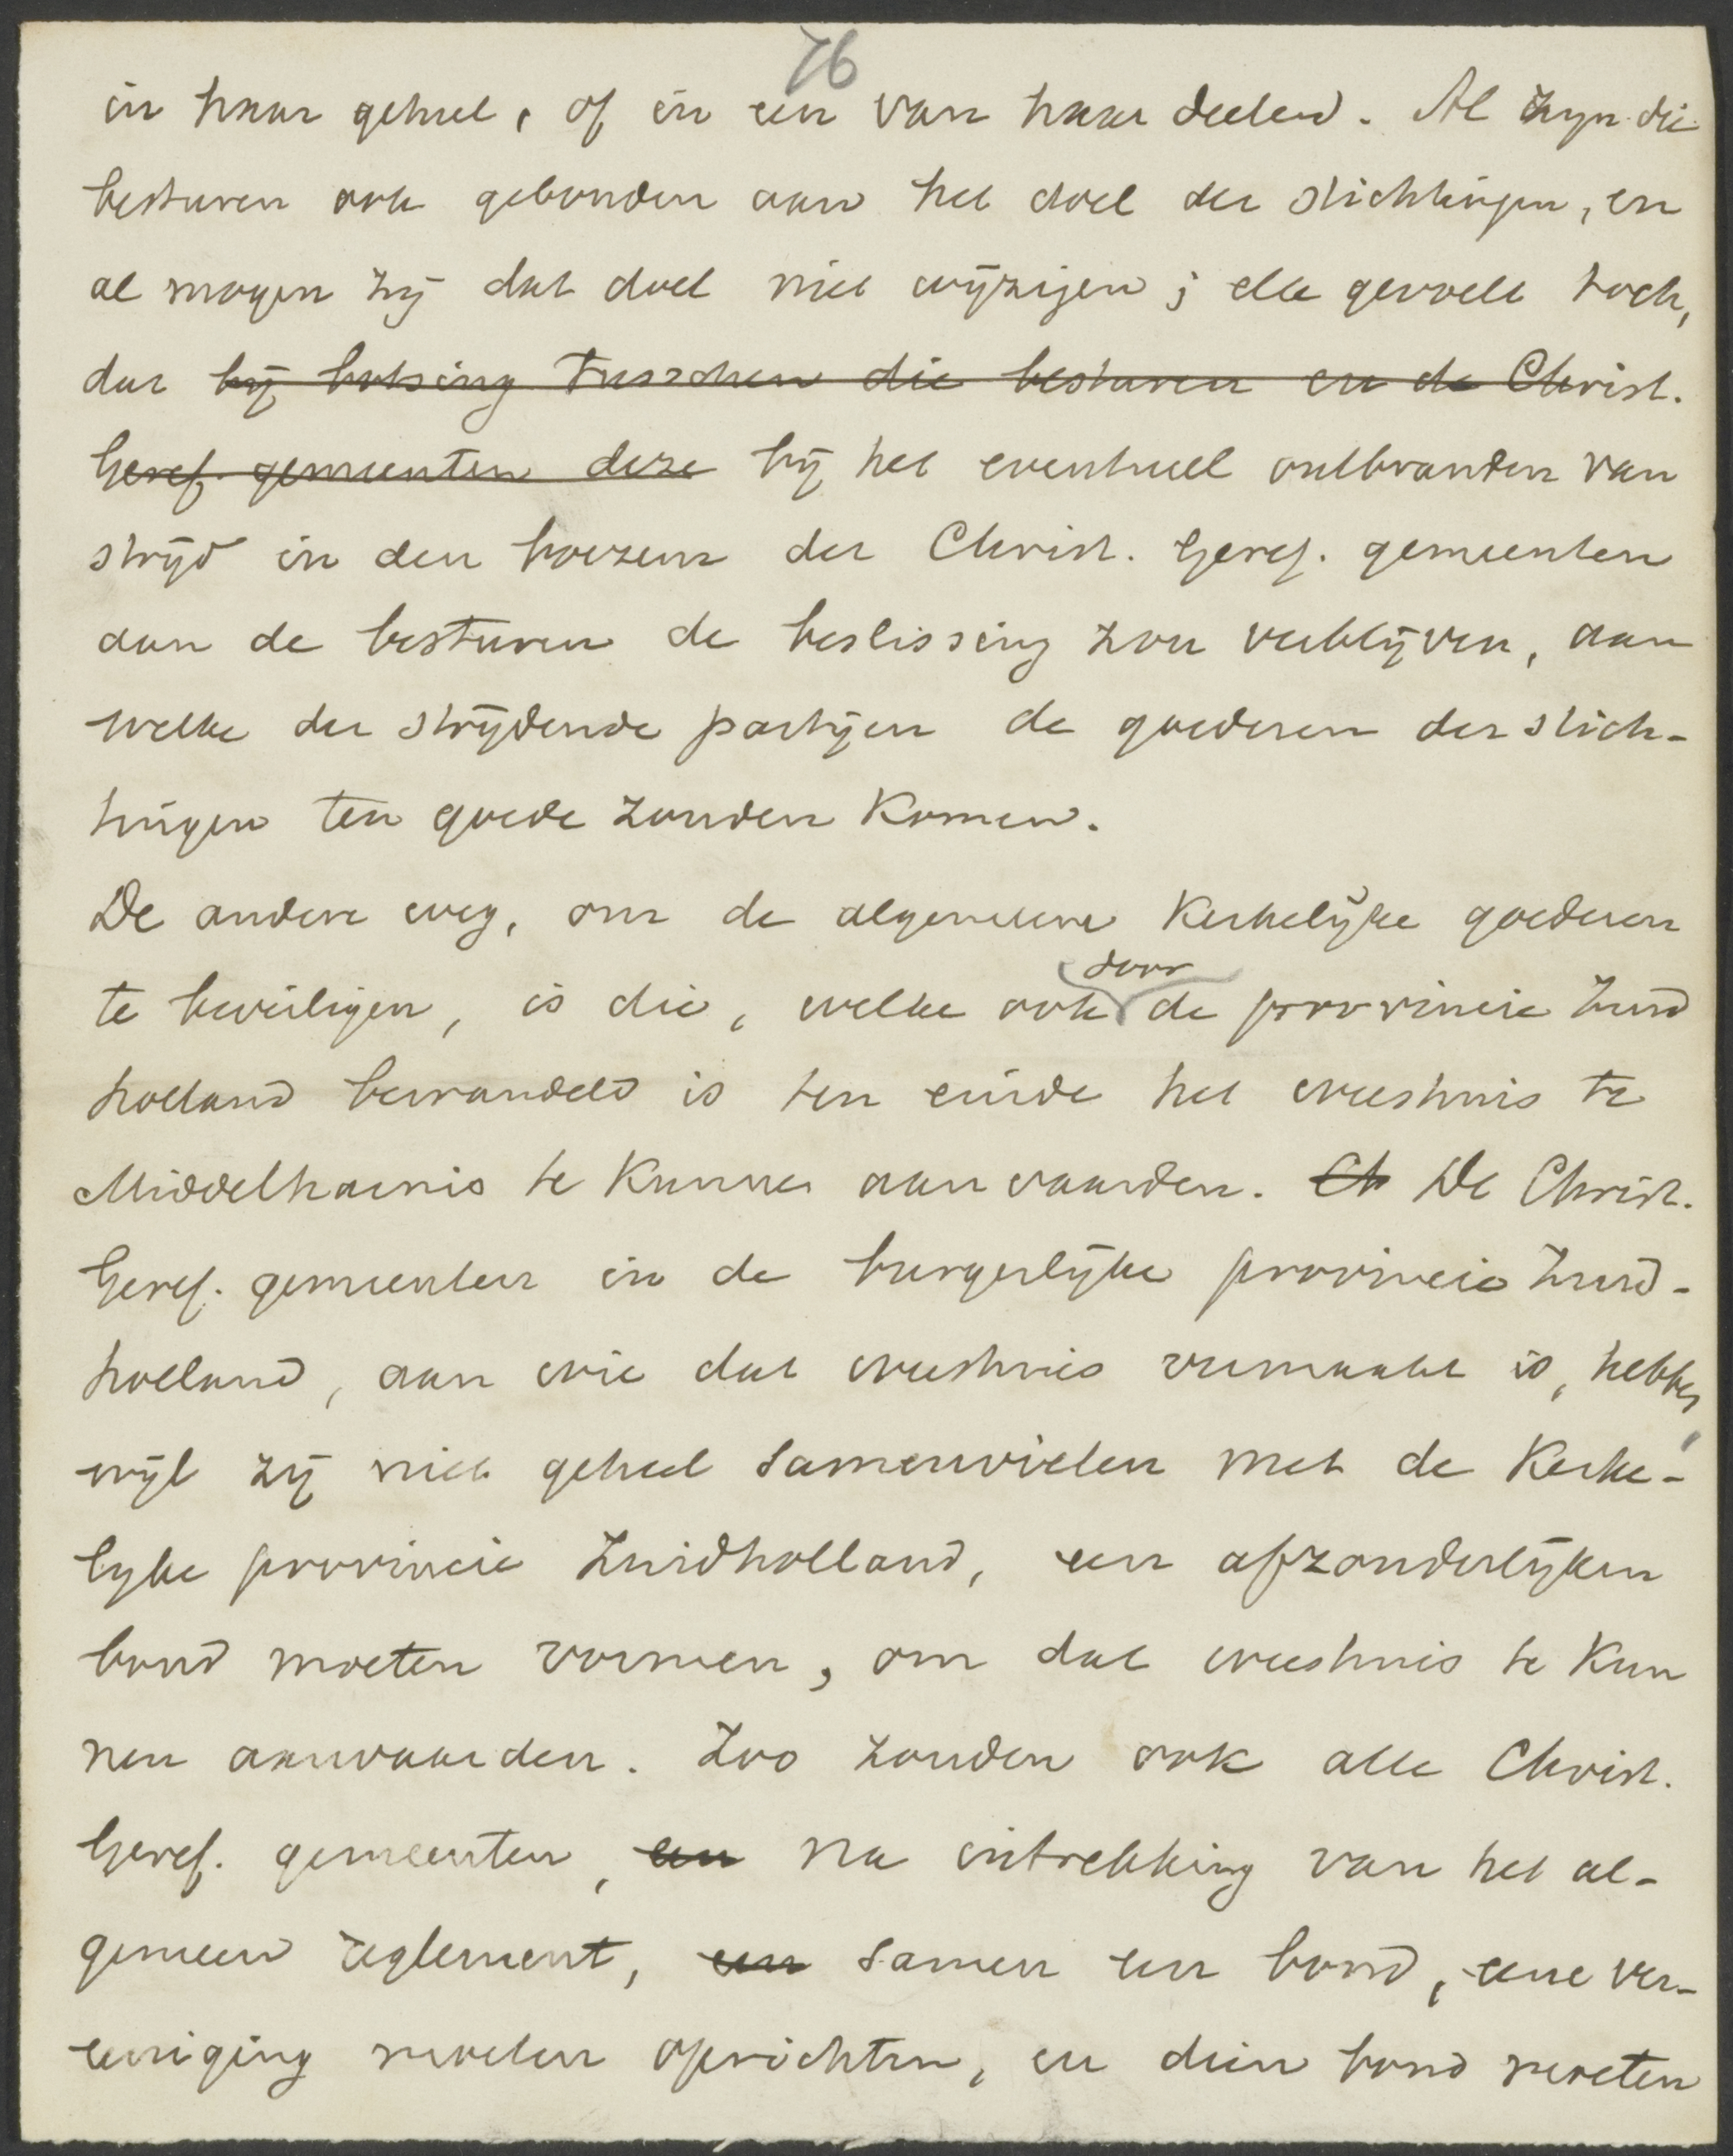 76
in haar geheel, of in een van haar deelen. Al zijn die
besturen ook gebonden aan het doel der stichtingen, en
al mogen zij dat doel niet wijzigen; elk gevoelt toch,
dat bij botsing tusschen die besturen en de Christ.
Geref. gemeenten deze bij het eventueel ontbranden van
strijd in den boezem der Christ. Geref. gemeenten
aan de besturen de beslissing zou verblijven, aan
welke der strijdende partijen de goederen der stich-
tingen ten goede zouden komen.
De andere weg, om de algemeene kerkelijke goederen
door
te beveiligen, is die, welke ook de provincie Zuid
holland bewandeld is ten einde het weeshuis te
Middelharnis te kunnen aanvaarden. Ch De Christ.
Geref. gemeenten in de burgerlijke provincie Zuid-
holland, aan wie dat weeshuis vermaakt is, hebben,
wijl zij niet geheel samenvielen met de kerke-
lijke provincie Zuidholland, een afzonderlijken
bond moeten vormen, om dat weeshuis te kun
nen aanvaarden. Zoo zouden ook alle Christ.
Geref. gemeenten, een na intrekking van het al-
gemeen reglement, een samen een bond, eene ver-
eeniging moeten oprichten, en dien bond moeten